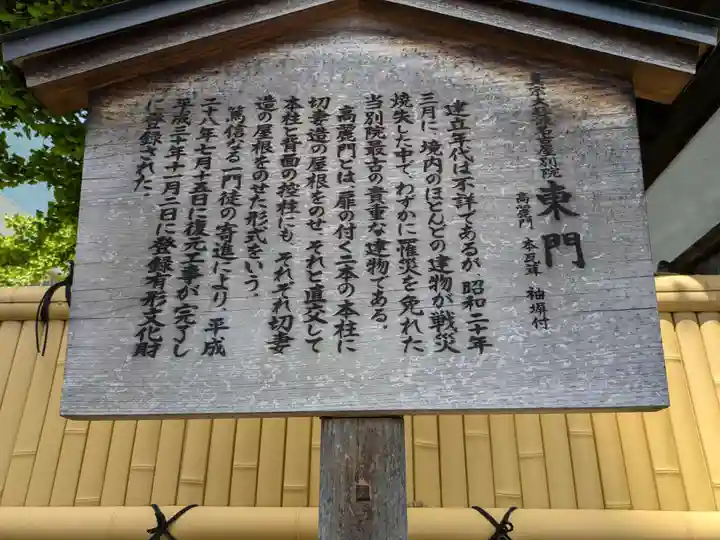 真宗大谷派名古屋別院
東門
高麗門 本瓦葺 袖塀付
建立年代は不詳であるが、昭和二十年
三月に境内のほとんどの建物が戦災
焼失した中で、わずかに罹災を免れた
当別院最古の貴重な建物である。
高麗門とは、扉の付く二本の本柱に
切妻造の屋根をのせ、それと直交して
本柱と背面の控柱にも、それぞれ切妻
造の屋根をのせた形式をいう。
篤信なる一門徒の寄進により、平成
二十八年七月十五日に復元工事が完了し
平成三十年十一月二日に登録有形文化財
に登録された。